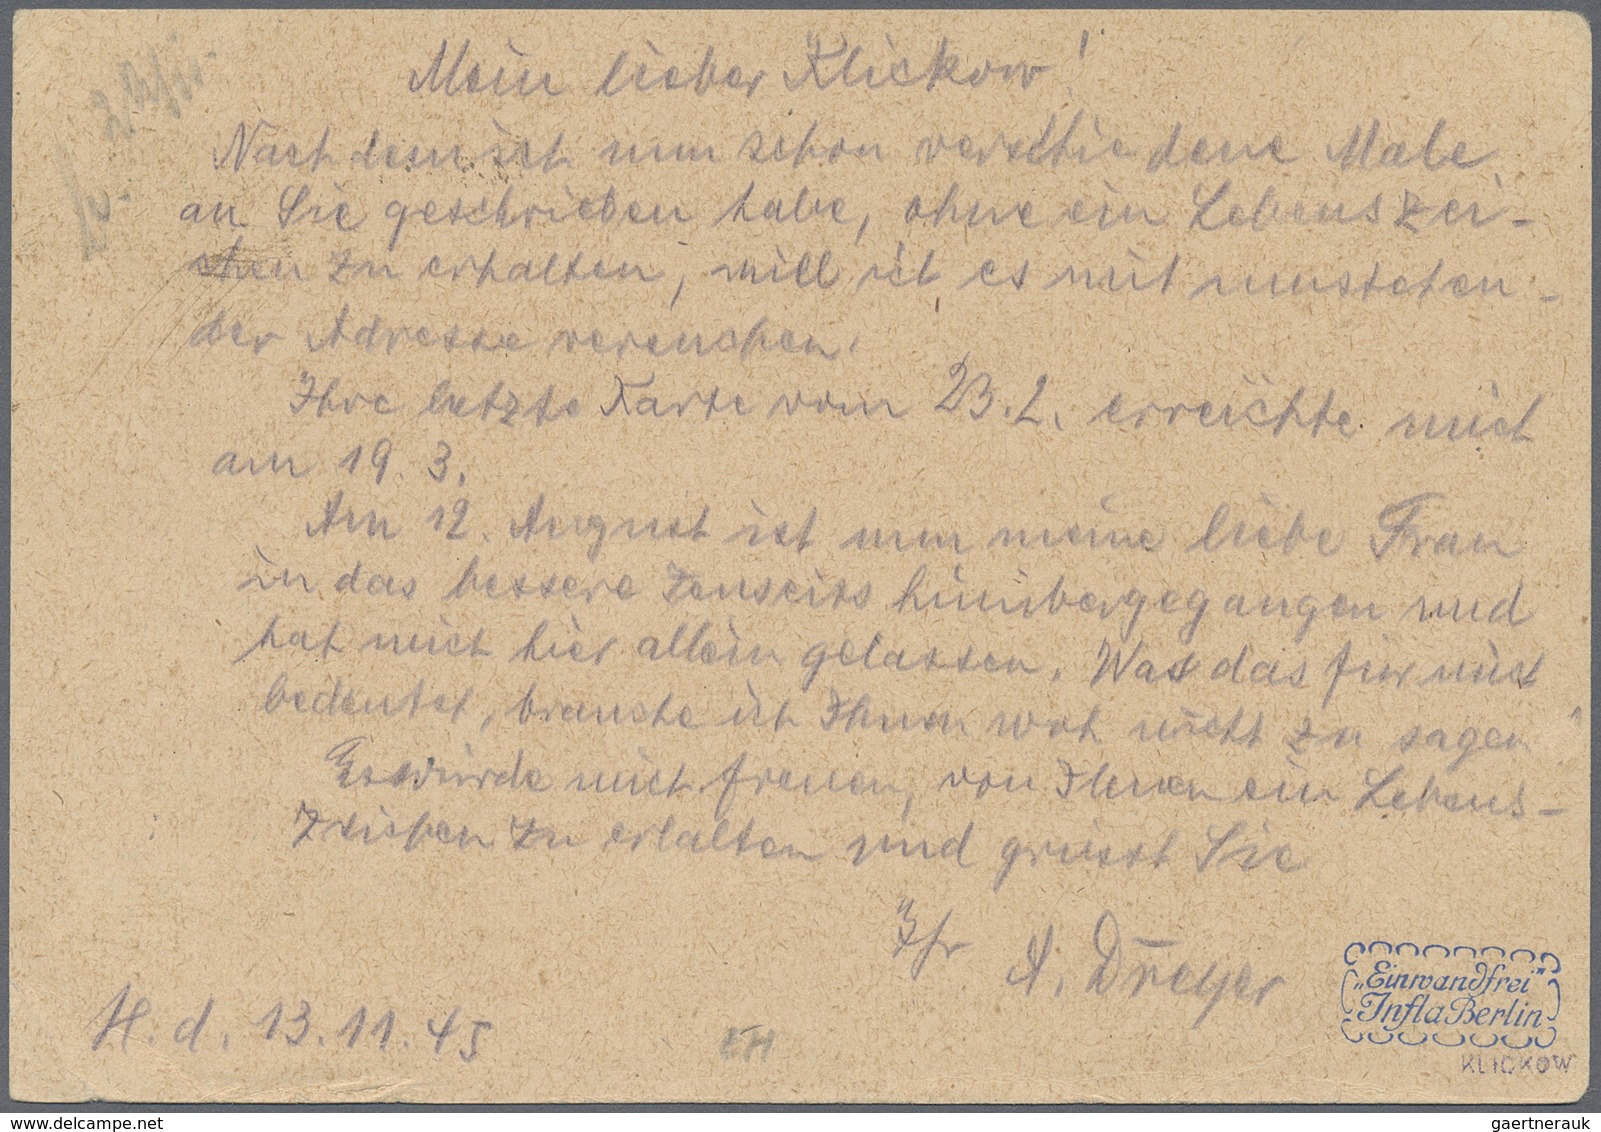 Mein lieber Klickow!
Nachdem ich nun schon verschiedene Male
an Sie geschrieben habe, ohne ein Lebenszei-
chen zu erhalten, will ich es mit umstehen-
der Adresse versuchen.
Ihre letzte Karte vom 23.2. erreichte mich
am 19.3.
Am 12. August ist nun meine liebe Frau
in das bessere Jenseits hinübergegangen und
hat mich hier allein gelassen. Was das für mich
bedeutet, brauche ich Ihnen woh nicht zu sagen
Es würde mich freuen, von Ihnen ein Lebens-
zeichen zu erhalten und grüsst Sie
Ihr A. Dreyer
H. d. 13.11.45
EH
„Einwandfrei"
Infla Berlin
KLICKOW
gaertnerauk @ delcampe.net